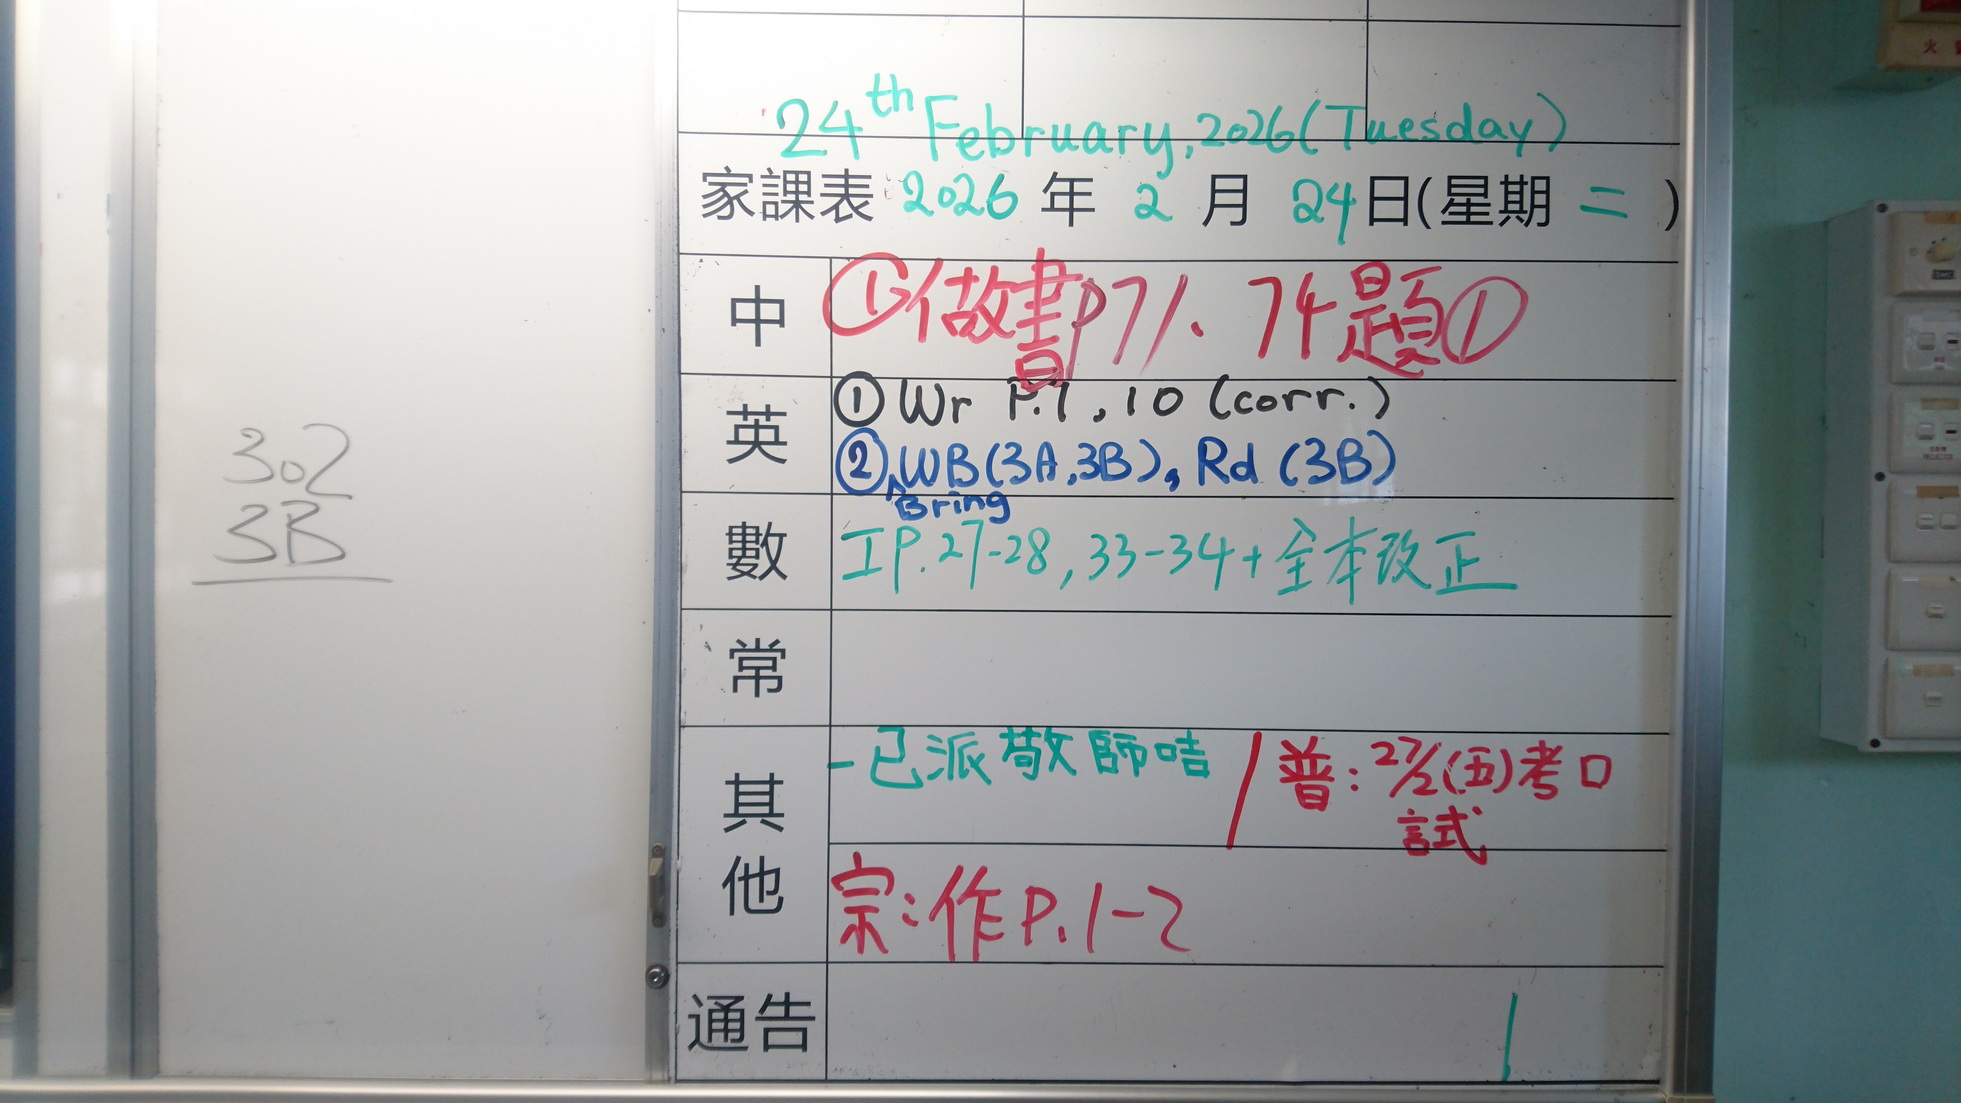 302
3B
24th February, 2026 (Tuesday)
家課表 2026 年 2 月 24 日(星期 二 )
中 ①做書P71、74題①
英 ① Wr P.1, 10 (corr.)
② WB (3A, 3B), Rd (3B)
Bring
數 工P.27-28, 33-34 + 全本改正
常
其他 - 已派敬師咭 / 普：27/2(五)考口試
宗：作P.1-2
通告
火